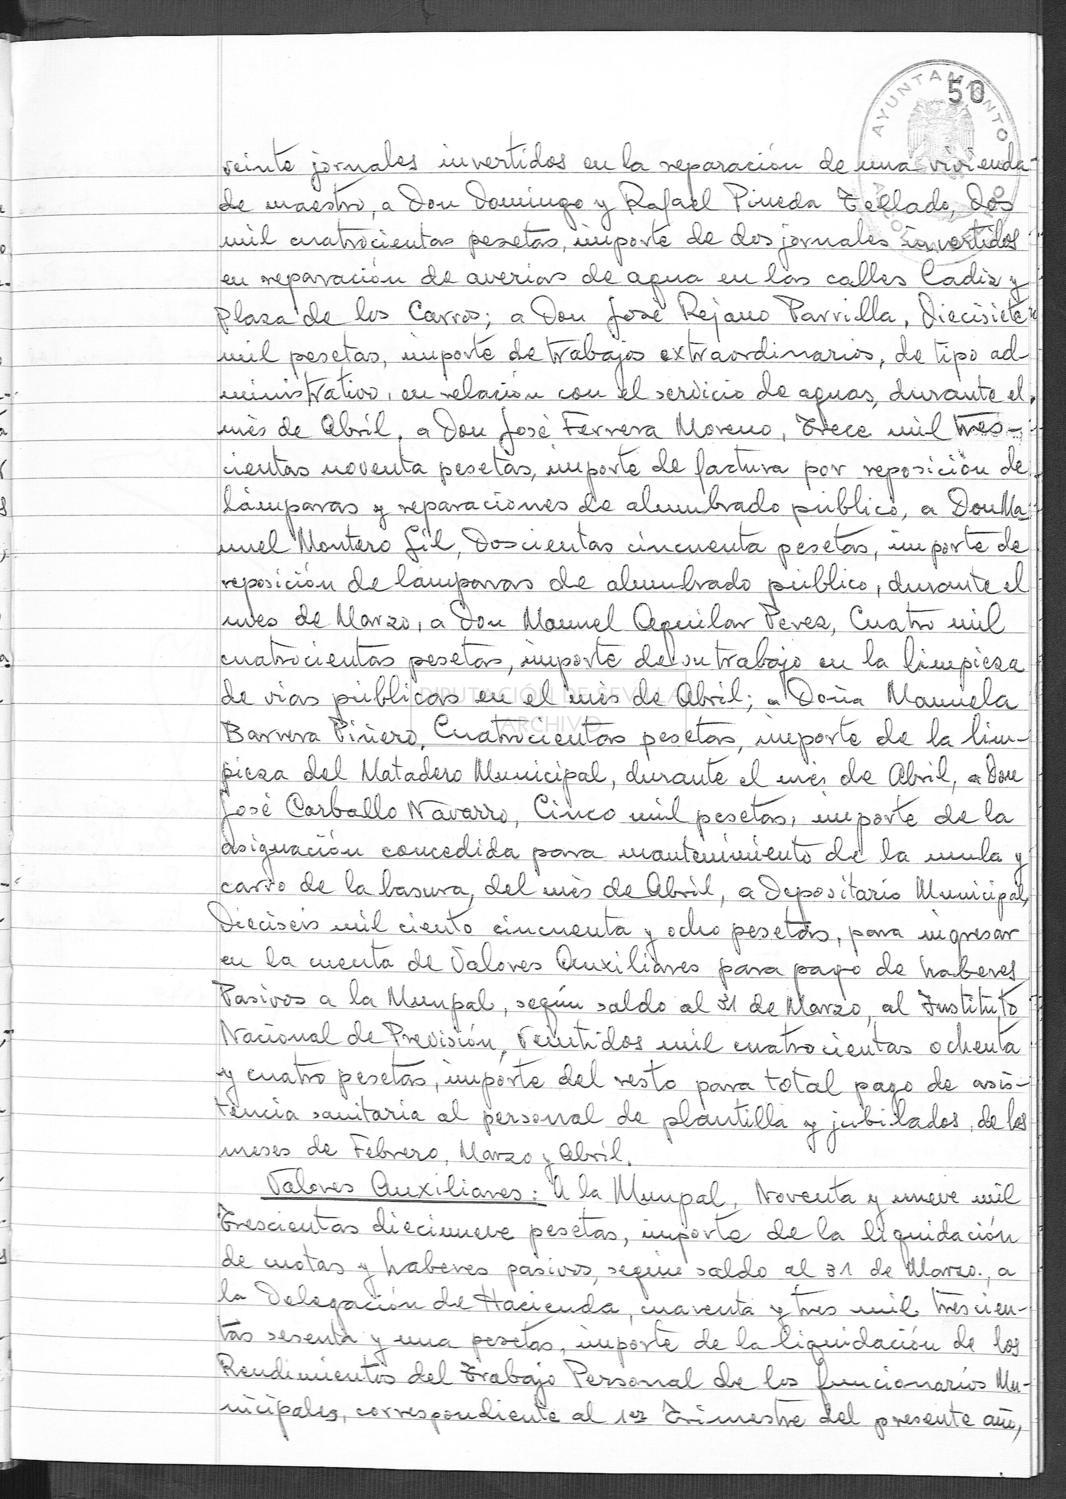 AYUNTAMIENTO
50
veinte jornales invertidos en la reparación de una vivienda
de maestro, a Don Domingo y Rafael Pineda Tellado, dos
mil cuatrocientas pesetas, importe de dos jornales invertidos
en reparación de averías de agua en las calles Cadiz y
Plaza de los Carros; a Don José Rejano Parrilla, Diecisiete
mil pesetas, importe de trabajos extraordinarios, de tipo ad-
ministrativo, en relación con el servicio de aguas, durante el
mes de Abril, a Don José Ferrera Moreno, Trece mil tres-
cientas noventa pesetas, importe de factura por reposición de
lámparas y reparaciones de alumbrado público, a Don Ma
nuel Montero Gil, Doscientas cincuenta pesetas, importe de
reposición de lámparas de alumbrado público, durante el
mes de Marzo, a Don Manuel Aguilar Perez, Cuatro mil
cuatrocientas pesetas, importe de su trabajo en la limpieza
de vías públicas en el mes de Abril; a Doña Manuela
DIPUTACIÓN DE SEVILLA
ARCHIVO
Barrera Piñero, Cuatrocientas pesetas, importe de la lim-
pieza del Matadero Municipal, durante el mes de Abril, a Don
José Carballo Navarro, Cinco mil pesetas, importe de la
asignación concedida para mantenimiento de la mula y
carro de la basura, del mes de Abril, a Depositario Municipal,
Dieciseis mil ciento cincuenta y ocho pesetas, para ingresar
en la cuenta de Valores Auxiliares para pago de haberes
Pasivos a la Munpal, según saldo al 31 de Marzo, al Instituto
Nacional de Previsión, Veintidos mil cuatrocientas ochenta
y cuatro pesetas, importe del resto para total pago de asis-
tencia sanitaria al personal de plantilla y jubilados, de los
meses de Febrero, Marzo y Abril.
Valores Auxiliares: A la Munpal, Noventa y nueve mil
Trescientas diecinueve pesetas, importe de la liquidación
de cuotas y haberes pasivos, según saldo al 31 de Marzo., a
la Delegación de Hacienda, cuarenta y tres mil trescien-
tas sesenta y una pesetas, importe de la liquidación de los
Rendimientos del Trabajo Personal de los funcionarios Mu-
nicipales, correspondiente al 1er Trimestre del presente año,